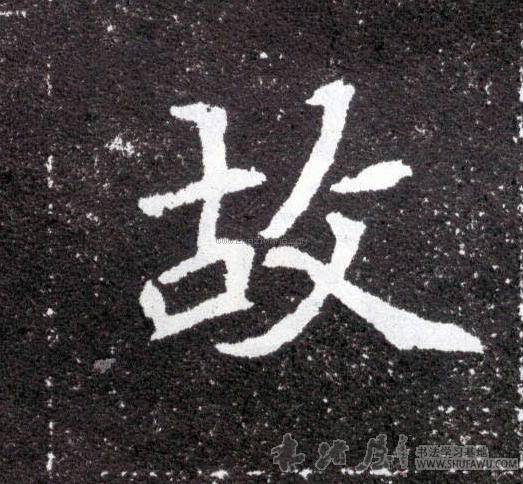 故
书法屋
书法学习基地
WWW.SHUFAWU.COM